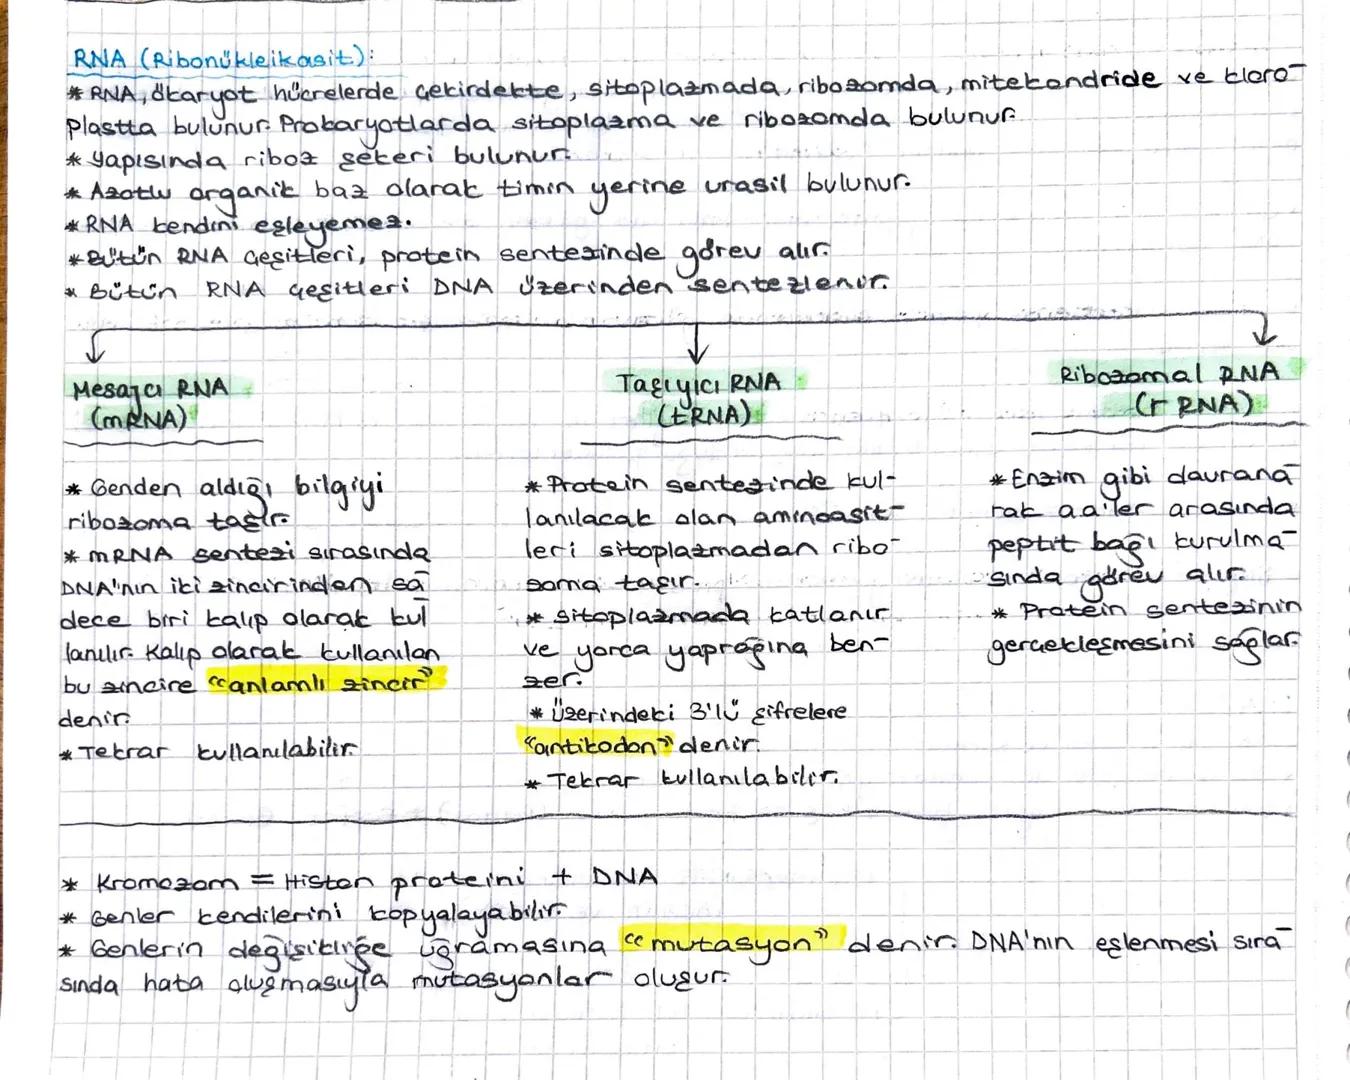 RNA (Ribonükleikasit):
* RNA, ökaryot hücrelerde çekirdekte, sitoplazmada, ribozomda, mitekondride ve kloro-
plastta bulunur. Prokaryotlarda sitoplazma ve ribozomda bulunur.
* Yapısında riboz şekeri bulunur.
* Azotlu organik baz olarak timin yerine urasil bulunur.
* RNA kendini eşleyemez.
* Bütün RNA çeşitleri, protein sentezinde görev alır.
* Bütün RNA çeşitleri DNA üzerinden sentezlenir.
Mesajcı RNA
(mRNA)
* Genden aldığı bilgiyi
ribozoma taşır.
* mRNA sentezi sırasında
DNA'nın iki zincirinden sa-
dece biri kalıp olarak kul
lanılır. Kalıp olarak kullanılan
bu zincire "anlamlı zincir"
denir.
* Tekrar kullanılabilir.
Taşıyıcı RNA
(tRNA)
* Protein sentezinde kul-
lanılacak olan aminoasit-
leri sitoplazmadan ribo-
zoma taşır.
* Sitoplazmada katlanır
ve yonca yaprağına ben-
zer.
* Üzerindeki 3'lü şifrelere
"antikodon" denir.
* Tekrar kullanılabilir.
Ribozomal RNA
(r RNA)
* Enzim gibi davrana-
rak a.a'ler arasında
peptit bağı kurulma-
sında görev alır.
* Protein sentezinin
gerçekleşmesini sağlar.
* Kromozom = Histon proteini + DNA
* Genler kendilerini kopyalayabilir.
* Genlerin değişikliğe uğramasına "mutasyon" denir. DNA'nın eşlenmesi sıra-
sında hata oluşmasıyla mutasyonlar oluşur.